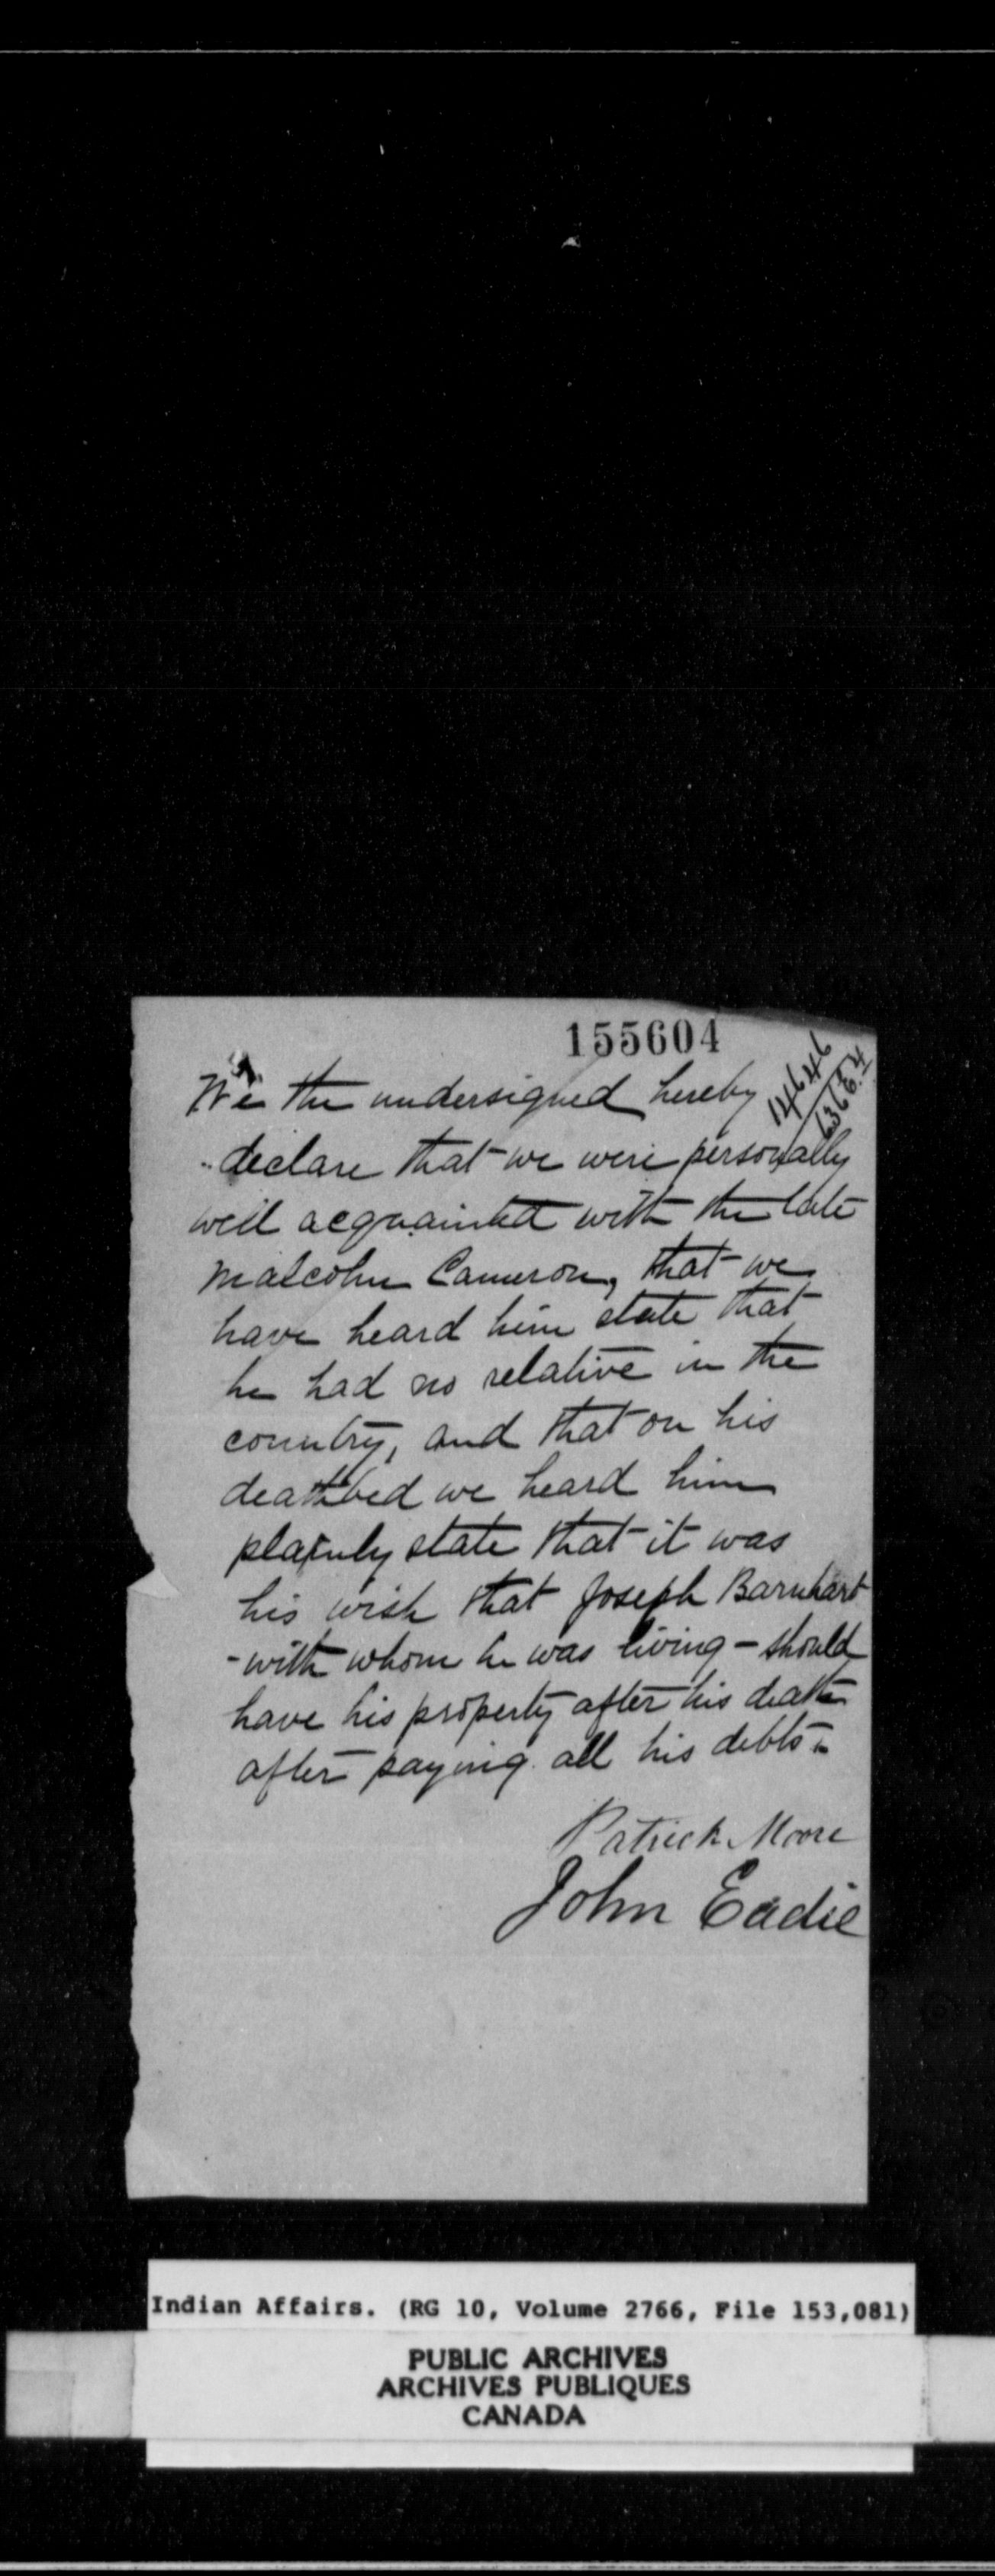 155604
14646
636E.4
We the undersigned hereby
declare that we were personally
well acquainted with the late
Malcolm Cameron, that we
have heard him state that
he had no relative in the
country, and that on his
deathbed we heard him
plainly state that it was
his wish that Joseph Barnhart
- with whom he was living - should
have his property after his death
after paying all his debts.
Patrick Moore
John Eadie
Indian Affairs. (RG 10, Volume 2766, File 153,081)
PUBLIC ARCHIVES
ARCHIVES PUBLIQUES
CANADA